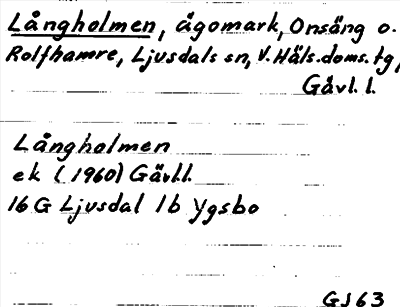 Långholmen, ägomark, Onsäng o.
Rolfhamre, Ljusdals sn, V. Häls. doms. tg,
Gävl. l.
Långholmen
ek (1960) Gävl.l.
16 G Ljusdal 1b Ygsbo
GJ 63